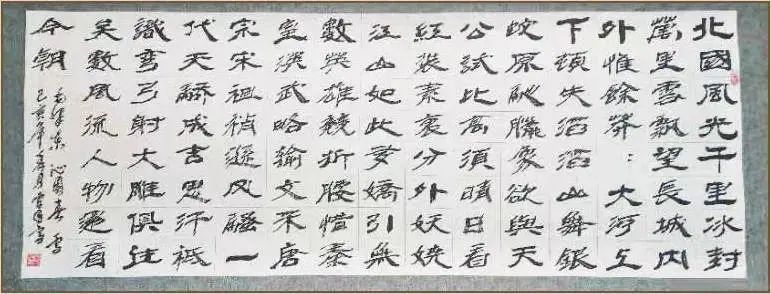 北國風光千里冰封
萬里雪飄望長城内
外惟餘莽：大河上
下頓失滔滔山舞銀
蛇原馳臘象欲與天
公試比高須晴日看
紅裝素裹分外妖嬈
江山如此多嬌引無
數英雄競折腰惜秦
皇漢武略輸文采唐
宗宋祖稍遜风騷一
代天驕成吉思汗祗
識彎弓射大雕俱往
矣數風流人物還看
今朝
毛澤東 沁園春雪
己亥年